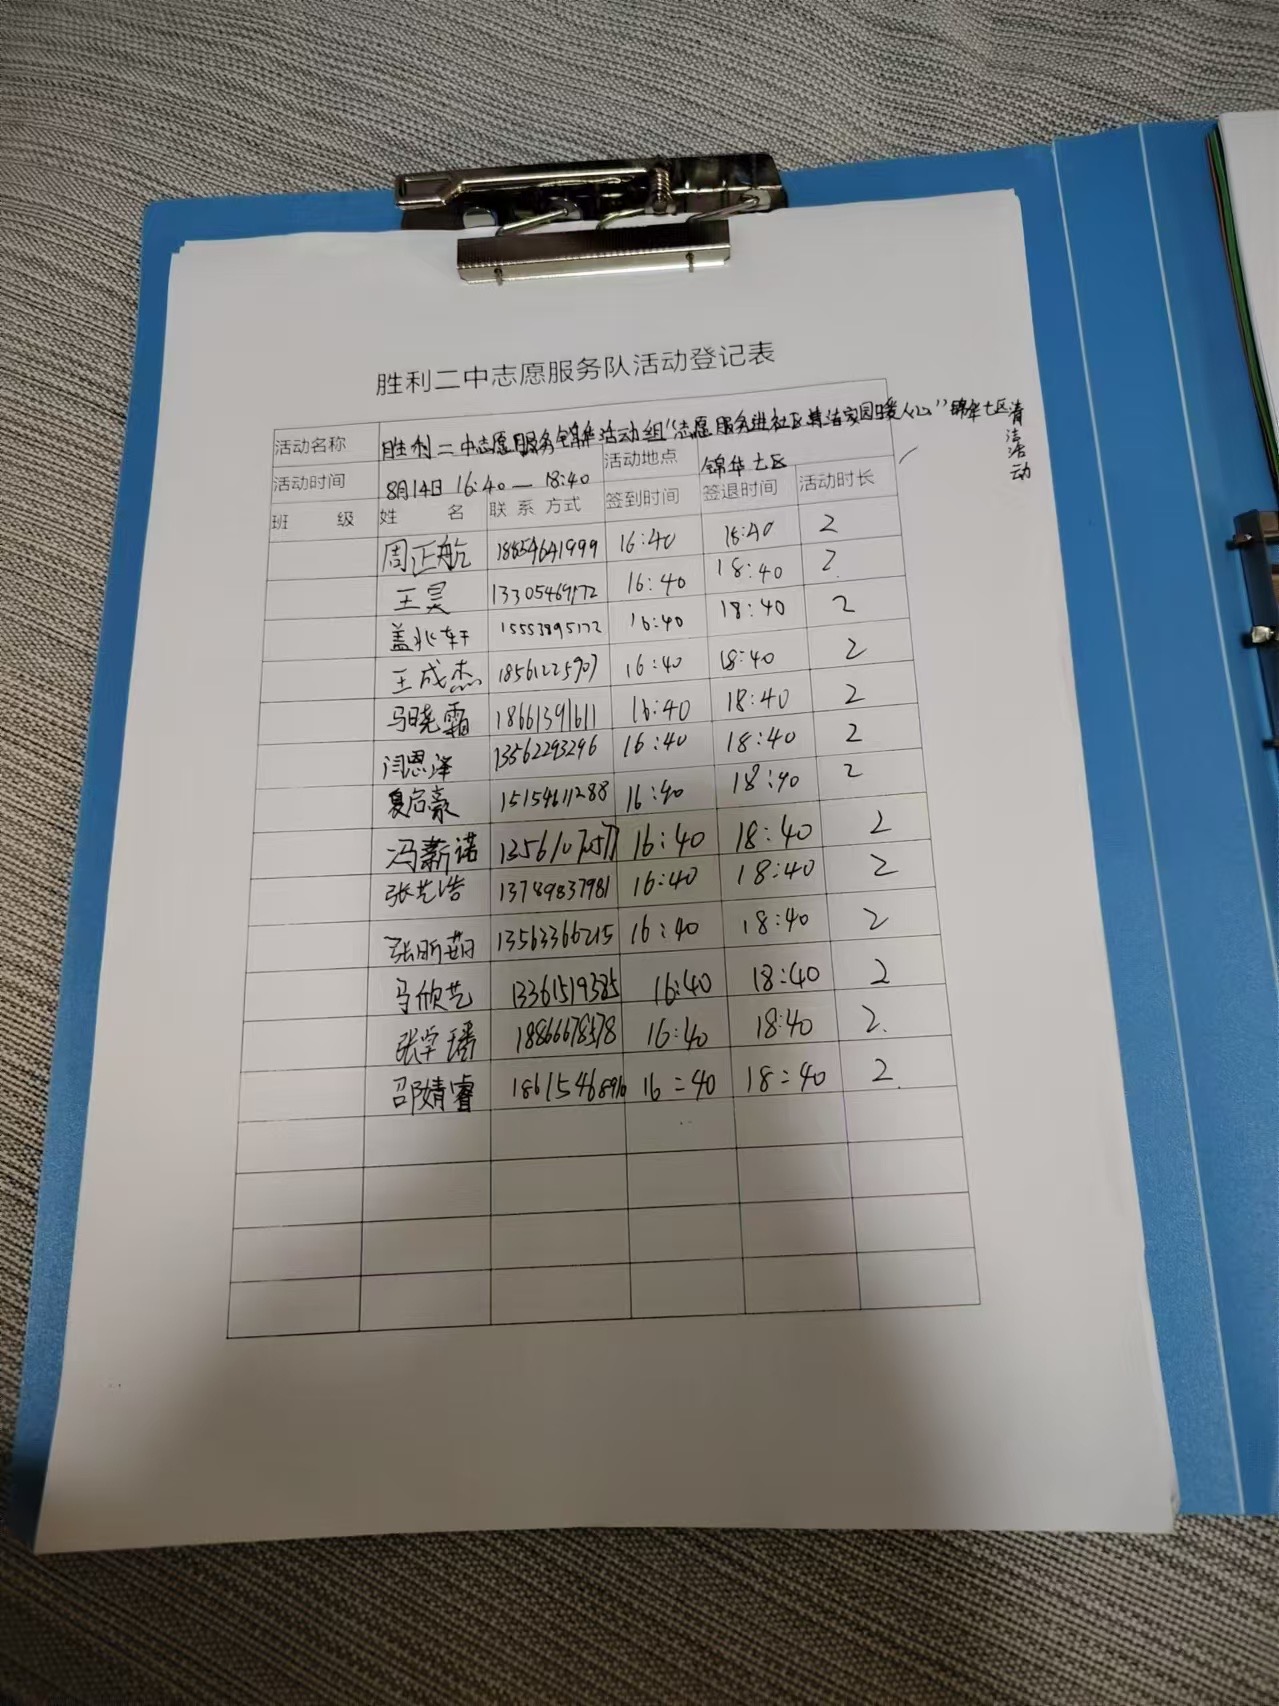 胜利二中志愿服务队活动登记表
活动名称 胜利二中志愿服务锦华活动组"志愿服务进社区 清洁家园暖人心"锦华七区清洁活动
活动时间 8月14日 16:40—18:40 活动地点 锦华七区
班 级 姓 名 联系方式 签到时间 签退时间 活动时长
周正航 18854641999 16:40 18:40 2
王昊 13305469172 16:40 18:40 2
盖兆轩 15553895172 16:40 18:40 2
王成杰 18561225907 16:40 18:40 2
马晓霜 18661391611 16:40 18:40 2
闫恩泽 13562293296 16:40 18:40 2
夏启豪 15154611288 16:40 18:40 2
冯薪诺 16:40 18:40 2
张艺浩 13789837981 16:40 18:40 2
张昕茹 13563366215 16:40 18:40 2
马欣艺 13361519385 16:40 18:40 2
张宇璠 18866678578 16:40 18:40 2
邵婧睿 18615468896 16:40 18:40 2